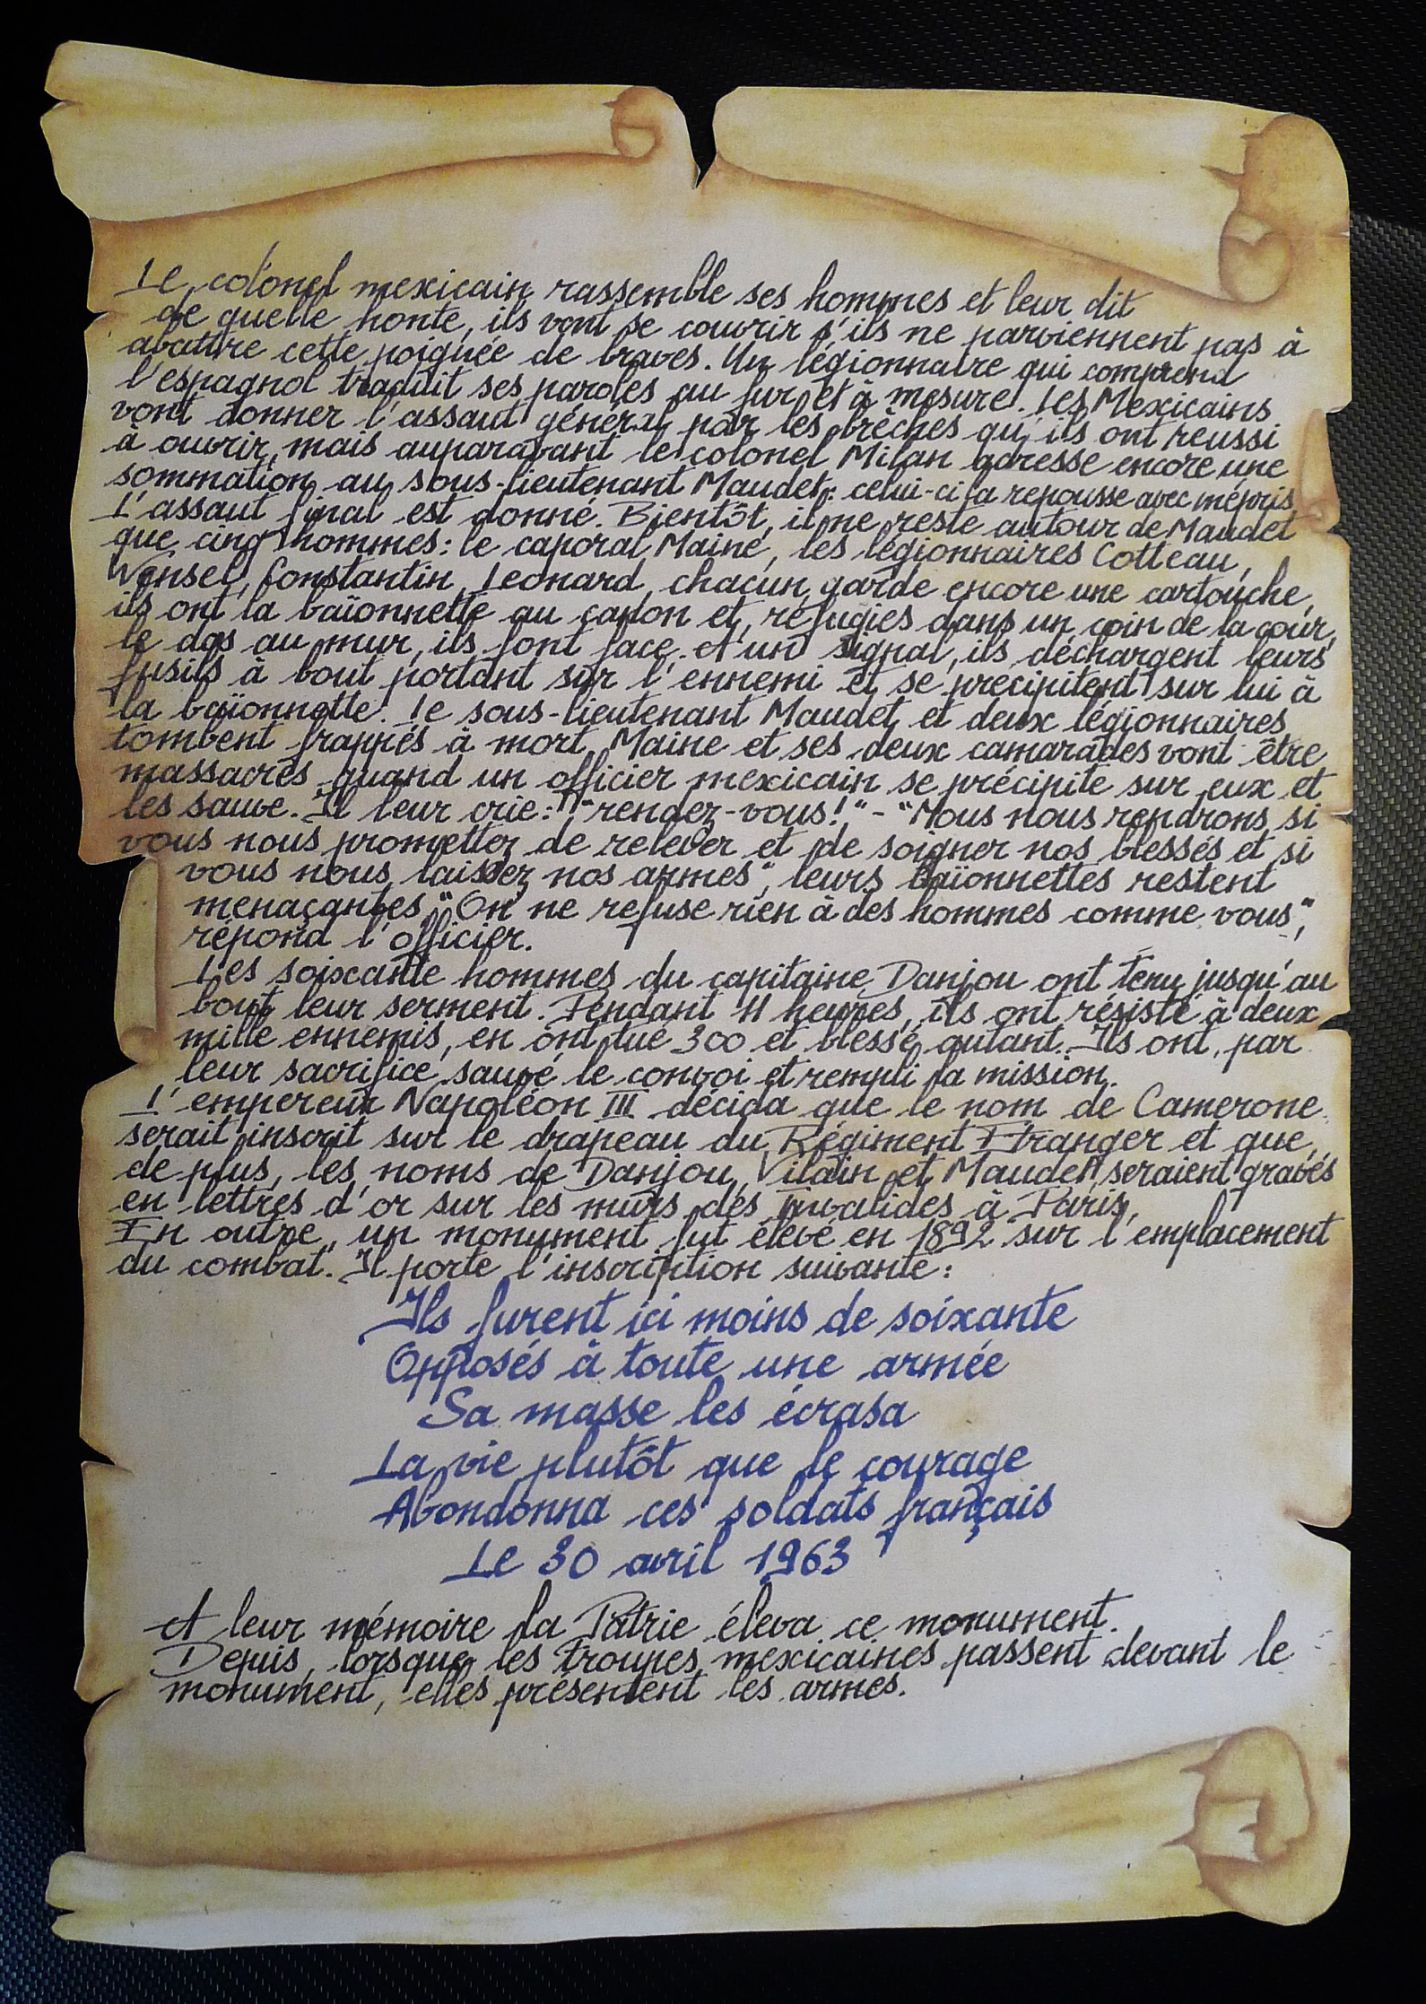 Le colonel mexicain rassemble ses hommes et leur dit
de quelle honte, ils vont se couvrir s'ils ne parviennent pas à
abattre cette poignée de braves. Un légionnaire qui comprend
l'espagnol traduit ses paroles au fur et à mesure. Les Mexicains
vont donner l'assaut général par les brèches qu'ils ont reussi
à ouvrir, mais auparavant le colonel Milan adresse encore une
sommation au sous-lieutenant Maudet: celui-ci la repousse avec mépris.
L'assaut final est donné. Bientôt, il ne reste autour de Maudet
que cinq hommes: le caporal Maine, les légionnaires Cotteau,
Wensel, Constantin, Leonard, chacun garde encore une cartouche,
ils ont la baïonnette au canon et, réfugiés dans un coin de la cour,
le dos au mur, ils font face. A un signal, ils déchargent leurs
fusils à bout portant sur l'ennemi et se précipitent sur lui à
la baïonnette. Le sous-lieutenant Maudet et deux légionnaires
tombent frappés à mort. Maine et ses deux camarades vont être
massacrés quand un officier mexicain se précipite sur eux et
les sauve. Il leur crie: "rendez-vous!" - "Nous nous rendrons si
vous nous promettez de relever et de soigner nos blessés et si
vous nous laissez nos armes", leurs baïonnettes restent
menaçantes. "On ne refuse rien à des hommes comme vous",
répond l'officier.
Les soixante hommes du capitaine Danjou ont tenu jusqu'au
bout leur serment. Pendant 11 heures, ils ont résisté à deux
mille ennemis, en ont tué 300 et blessé autant. Ils ont, par
leur sacrifice, sauvé le convoi et rempli la mission.
L'empereur Napoléon III décida que le nom de Camerone
serait inscrit sur le drapeau du Régiment Etranger et que,
de plus, les noms de Danjou, Vilain et Maudet seraient gravés
en lettres d'or sur les murs des Invalides à Paris,
En outre, un monument fut élevé en 1892 sur l'emplacement
du combat. Il porte l'inscription suivante:
Ils furent ici moins de soixante
Opposés à toute une armée
Sa masse les écrasa
La vie plutôt que le courage
Abondonna ces soldats français
Le 30 avril 1963
A leur mémoire la Patrie éleva ce monument.
Depuis, lorsque les troupes mexicaines passent devant le
monument, elles présentent les armes.